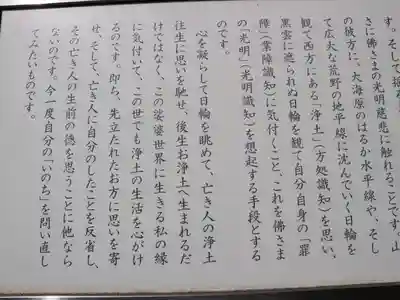 す。そして極
さに佛さまの光明慈悲に触れることです。山
の彼方に、大海原のはるか水平線や、そし
て広大な荒野の地平線に沈んでいく日輪を
観て西方にある「浄土」(方処識知)を思い、
黒雲に遮られぬ日輪を観て自分自身の「罪
障」(業障識知)に気付くこと、これを佛さま
の「光明」(光明識知)を想起する手段とする
のです。
心を凝らして日輪を眺めて、亡き人の浄土
往生に思いを馳せ、後生お浄土へ生まれるだ
けではなく、この娑婆世界に生きる私の縁
に気付いて、この世でも浄土の生活を心がけ
るのです。即ち、先立たれたお方に思いを寄
せ、そして、亡き人に自分のしたことを反省し、
その亡き人の生前の徳を思うことに他なら
ないのです。今一度自分の「いのち」を問い直し
てみたいものです。